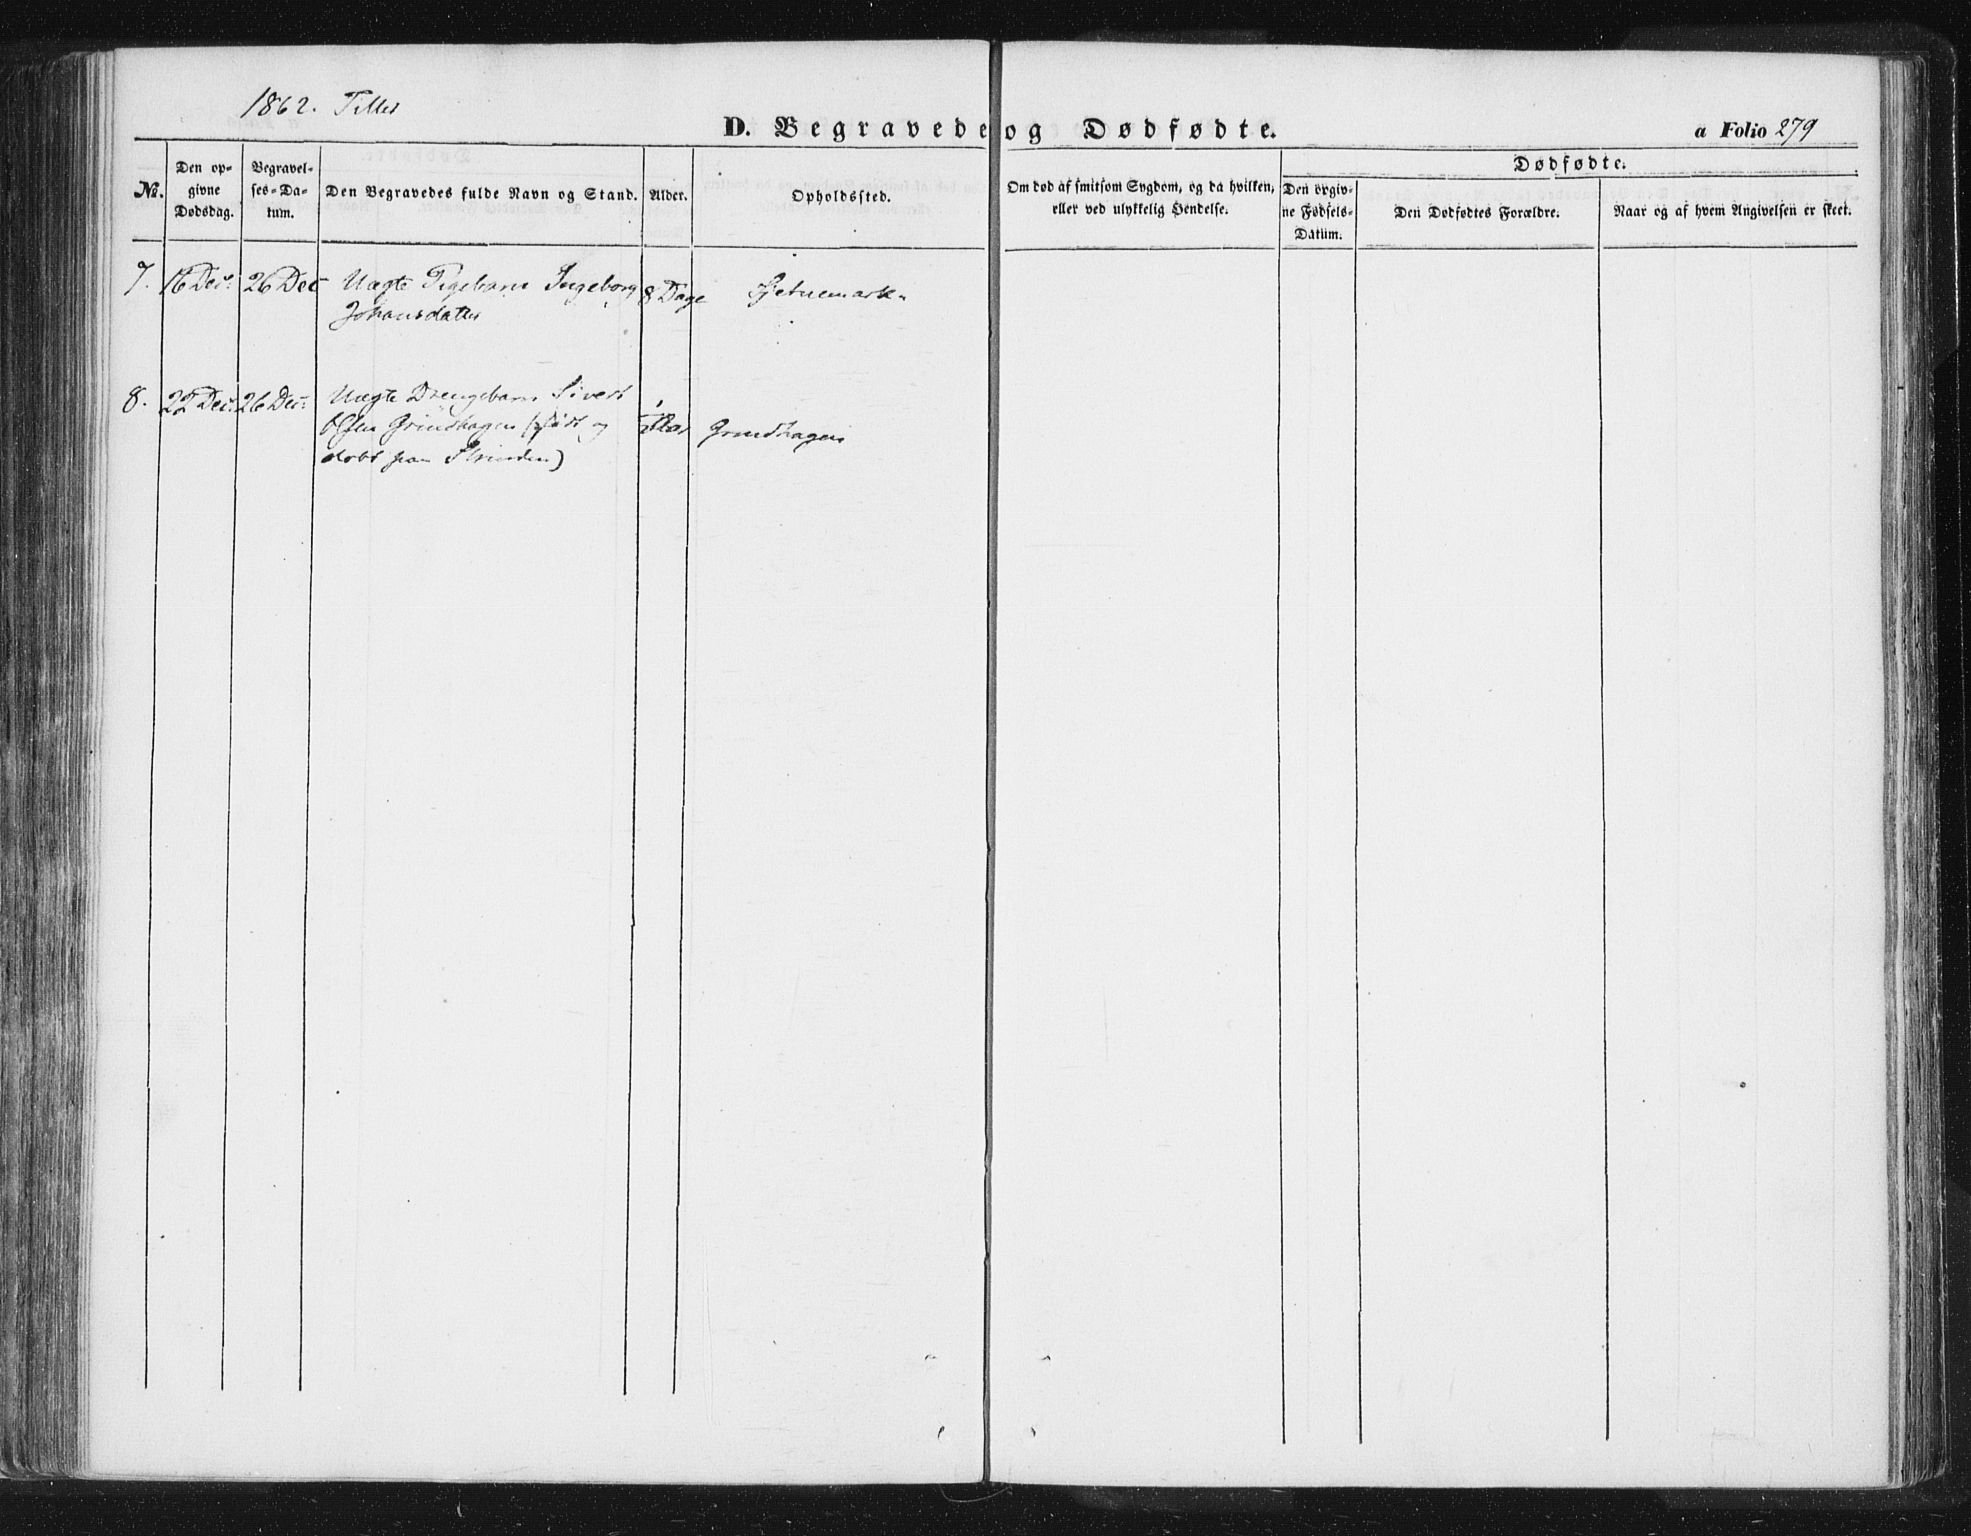 1862. Tiller
D. Begravede og Dødfødte.
a Folio 279
No.
Den op-
givne
Dødsdag.
Begravel-
ses-Da-
tum.
Den Begravedes fulde Navn og Stand.
Alder.
Opholdssted.
Om død af smitsom Sygdom, og da hvilken,
eller ved ulykkelig Hendelse.
Dødfødte.
Den opgiv-
ne Fødsels-
Datum.
Den Dødfødtes Forældre.
Naar og af hvem Angivelsen er skeet.
7. 16 Dec: 26 Dec Uægte Pigebarn Ingeborg 8 Dage
Johansdatter
8. 22 Dec: 26 Dec: Uægte Drengebarn Sivert
Olsen Grindhagen (født og Grindhagen
døbt paa Strinden)